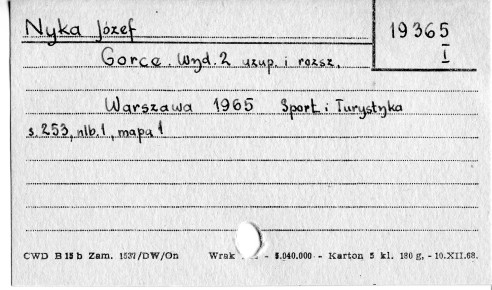 Nyka Józef
19365
I
Gorce. Wyd. 2 uzup. i rozsz.
Warszawa 1965 Sport i Turystyka
s. 253, nlb. 1, mapa 1
CWD B 15 b Zam. 1537/DW/On Wrak - 5.040.000 - Karton 5 kl. 180 g, - 10.XII.68.